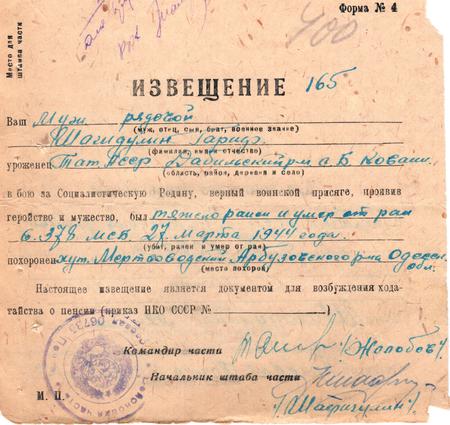 Форма № 4
Место для
штампа части
400
ИЗВЕЩЕНИЕ 165
Ваш Муж рядовой
(муж, отец, сын, брат, военное звание)
Шагидулин Гариф
(фамилия, имя и отчество)
уроженец Тат. АССР р-н с. Б
(область, район, деревня и село)
в бою за Социалистическую Родину, верный воинской присяге, проявив
геройство и мужество, был тяжело ранен и умер от ран
в 378 мсб 27 марта 1944 года.
(убит, ранен и умер от ран)
похоронен хут. Мертвоводский Арбузовского р-на Одесск. обл.
(место похорон)
Настоящее извещение является документом для возбуждения хода-
тайства о пенсии (приказ НКО СССР №
)
Командир части /Жалобов/
Начальник штаба части
М. П. /Шафигулин/